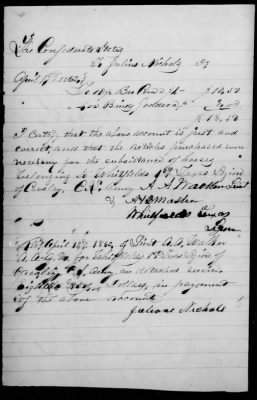 The Confederate States
To Julius Nichols Dr
April 18th 1862
To 10½ Bus Corn $ $10.50
" Binds Fodder 3.00
$13.50
I certify that the above account is just and
correct, and that the articles purchased were
necessary for the subsistance of horses
belonging to Whitfields 1st Texas Legion
of Cavalry, C.S. Army A. A. Walker Lieut
& A.Q. Master
Whitfields Texas
Legion
April 18th 1862, of Lieut A. A. Walker
A.A.Q.M. for Whitfields 1st Texas Legion of
Cavalry C.S. Army, on detached service
dollars, in payment
of the above account
Juliane Nichols